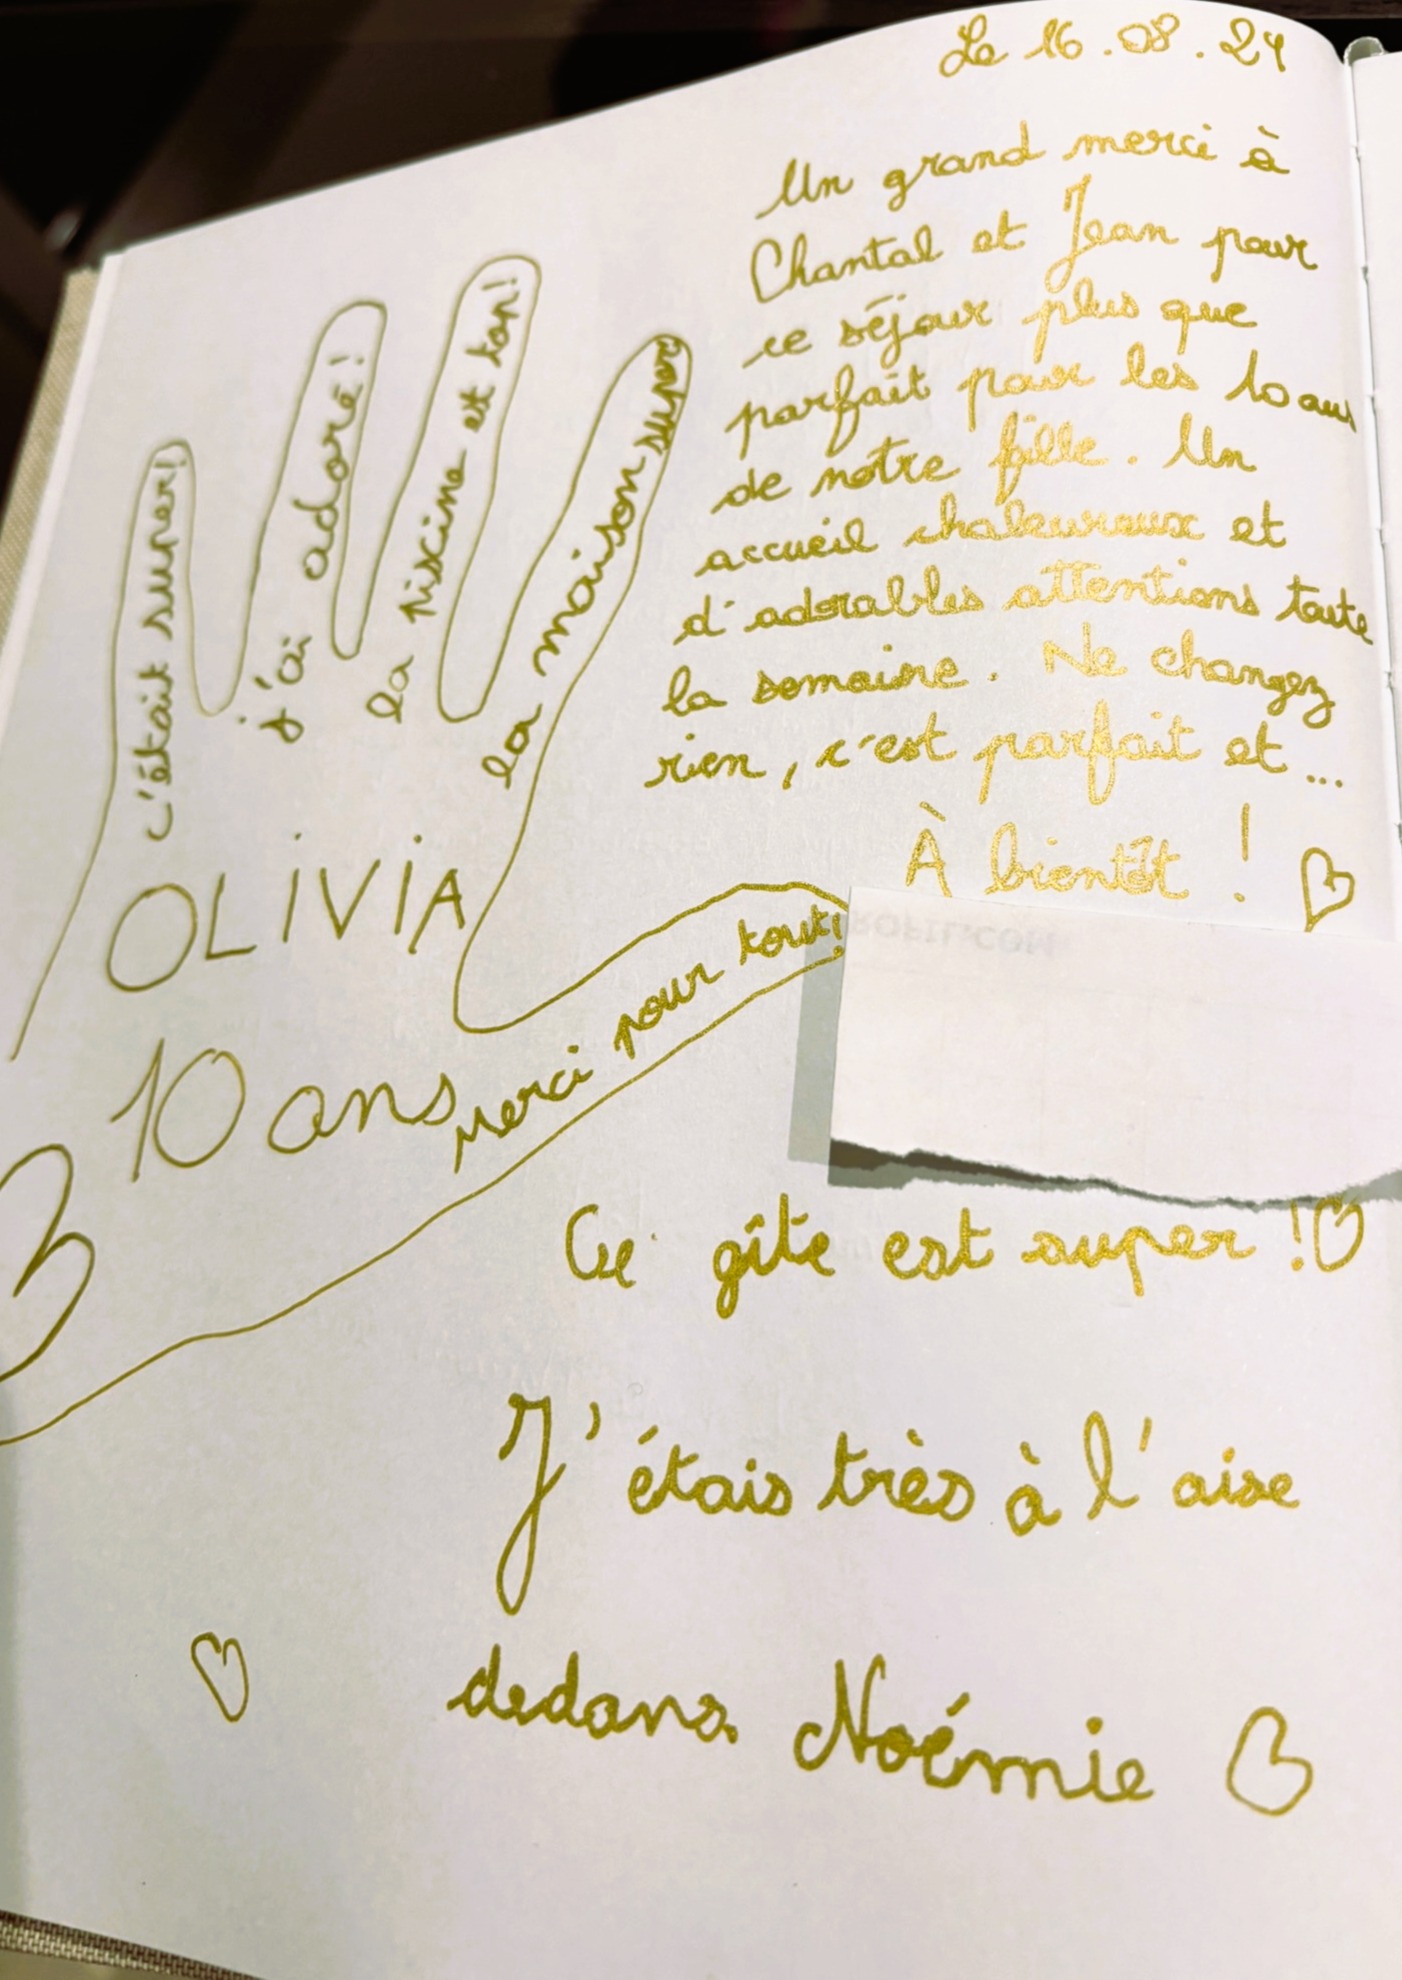 Le 16.08.24
Un grand merci à
Chantal et Jean pour
ce séjour plus que
parfait pour les 10 ans
de notre fille. Un
accueil chaleureux et
d'adorables attentions toute
la semaine. Ne changez
rien, c'est parfait et...
À bientôt !
c'était super!
j'ai adoré!
la piscine et top!
la maison super
merci pour tout!
OLIVIA
10 ans
Ce gîte est super !
J'étais très à l'aise
dedans. Noémie